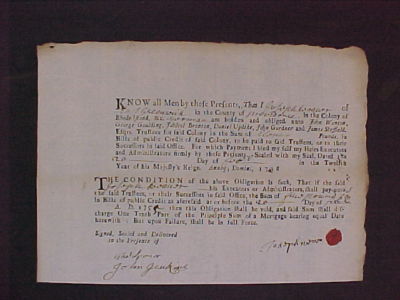 KNOW all Men by these Presents, That I Joseph of
in the County of in the Colony of
Rhode Island, &c. am holden and obliged unto John Wanton,
George Goulding, Jahleel Brenton, Daniel Updike, John Gardner and James Sheffield,
Esqrs. Trustees for said Colony in the Sum of Pounds, in
Bills of publick Credit of said Colony, to be paid to said Trustees, or to their
Successors in said Office. For which Payment, I bind my self my Heirs Executors
and Administrators firmly by these Presents. Sealed with my Seal, Dated the
Day of in the Twelfth
Year of his Majesty's Reign. Annoq; Domini, 173
THE CONDITION of the above Obligation is such, That if the said
Joseph his Executors or Administrators, shall pay unto
the said Trustees, or their Successors in said Office, the Sum of
in Bills of publick Credit as aforesaid at or before the Day of
A. D. 17 then this Obligation shall be void, and said Sum shall dis-
charge One Tenth Part of the Principle Sum of a Mortgage bearing equal Date
herewith: But upon Failure, shall be in full Force.
Signed, Sealed and Delivered
in the Presence of
Joseph
John